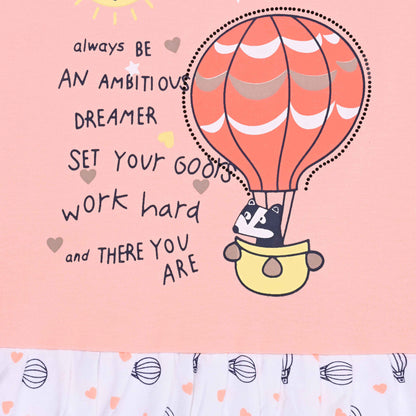 always BE
AN AMBITIOUS
DREAMER
SET YOUR GOOLS
WORK hard
and THERE YOU
ARE